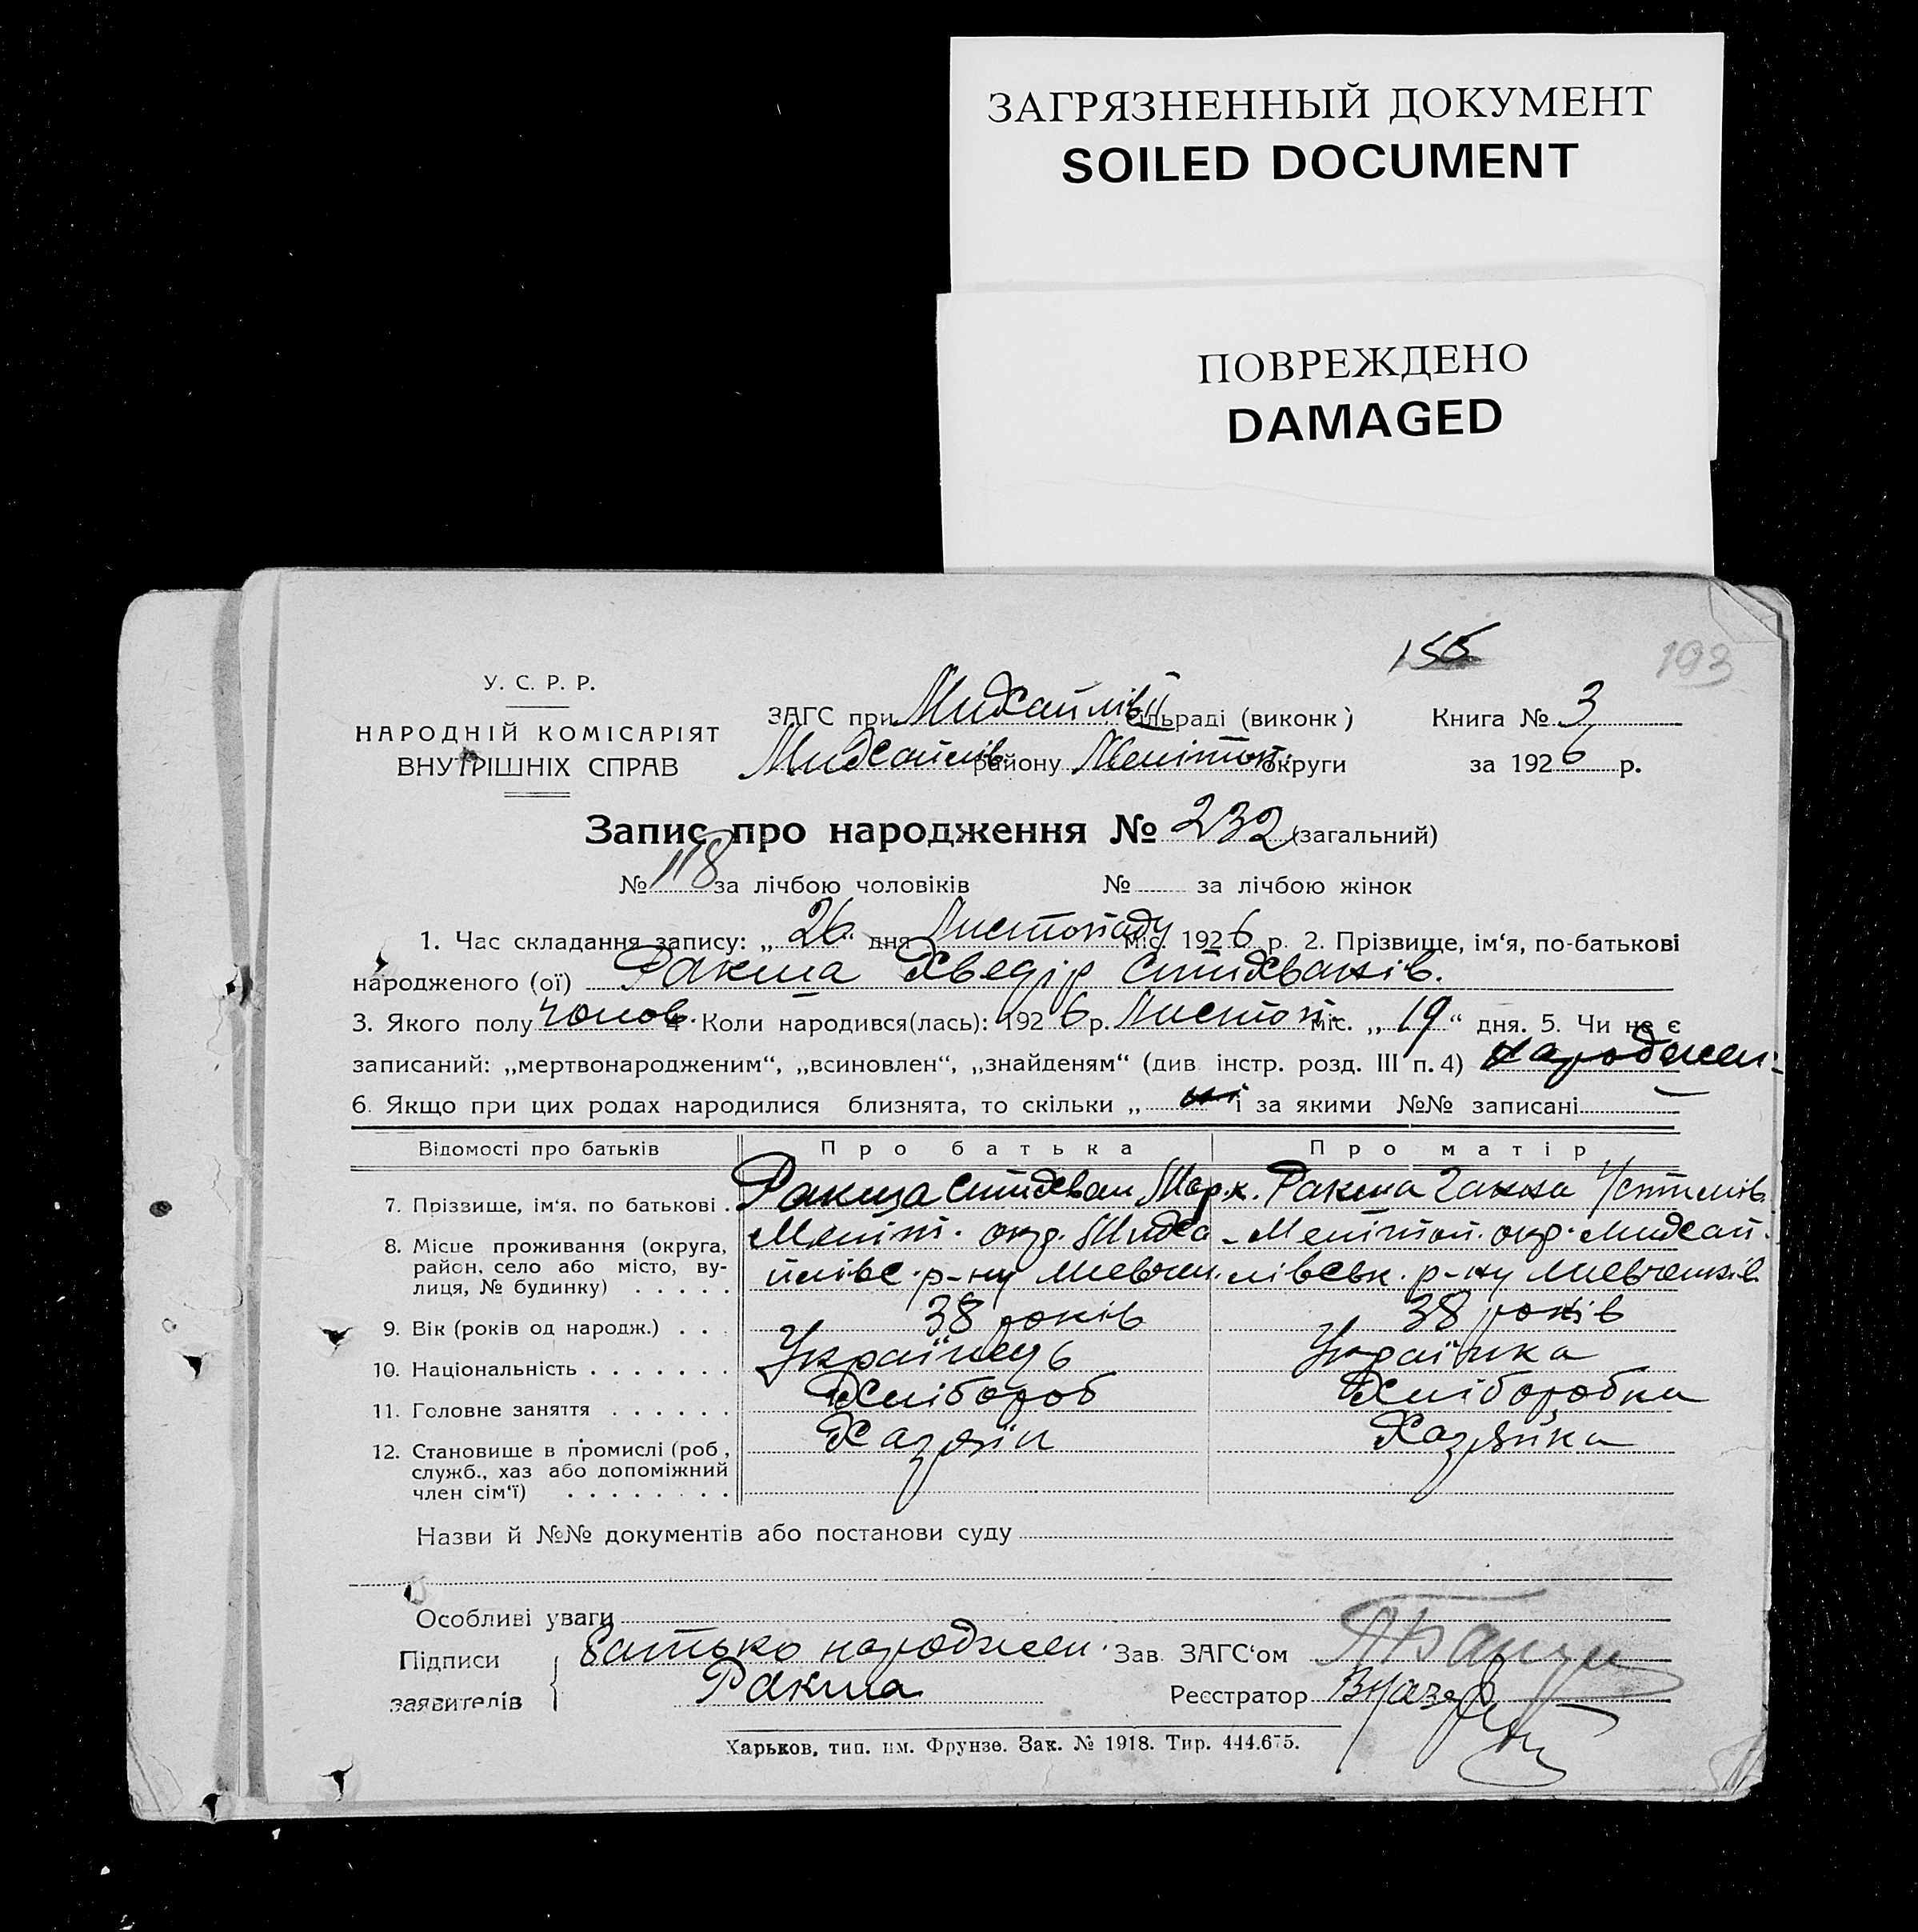 ЗАГРЯЗНЕННЫЙ ДОКУМЕНТ
SOILED DOCUMENT
ПОВРЕЖДЕНО
DAMAGED
193
У. С. Р. Р.
НАРОДНІЙ КОМІСАРІЯТ
ВНУТРІШНІХ СПРАВ
ЗАГС при Михайлів сільраді (виконк)
Книга № 3
Михайлів району Мелітоп. округи
за 1926 р.
Запис про народження № 232 (загальний)
№ 118 за лічбою чоловіків № за лічбою жінок
1. Час складання запису: „26“ дня Листопаду міс. 1926 р. 2. Прізвище, ім‘я, по-батькові
народженого (ої) Ракша Хведір Стихванів.
3. Якого полу чолов. 4 Коли народився(лась): 1926 р. Листоп. міс. „19“ дня. 5. Чи не є
записаний: „мертвонародженим“, „всиновлен“, „знайденям“ (див. інстр. розд. III п. 4) народжен.
6. Якщо при цих родах народилися близнята, то скільки „ ні і за якими №№ записані —
Відомості про батьків Про батька Про матір
7. Прізвище, ім‘я, по батькові . Ракша Стихван Марк. Ракша Ганна Устимів.
8. Місце проживання (округа, район, село або місто, вулиця, № будинку) . . . . .
Меліт. окр. Миха- Мелітоп. окр. Михай-
йлівс. р-ну лівськ. р-ну
9. Вік (років од народж.) . . . 38 років 38 років
10. Національність . . . . . . . Українець Українка
11. Головне заняття . . . . . . Хлібороб Хліборобка
12. Становище в промислі (роб, Хазяїн Хазяйка
служб., хаз або допоміжний
член сім‘ї) . . . . . . . .
Назви й №№ документів або постанови суду
Особливі уваги
Підписи заявителів { Батько народжен. Зав. ЗАГС‘ом
Ракша Реєстратор
Харьков, тип. им. Фрунзе. Зак. № 1918. Тир. 444.675.